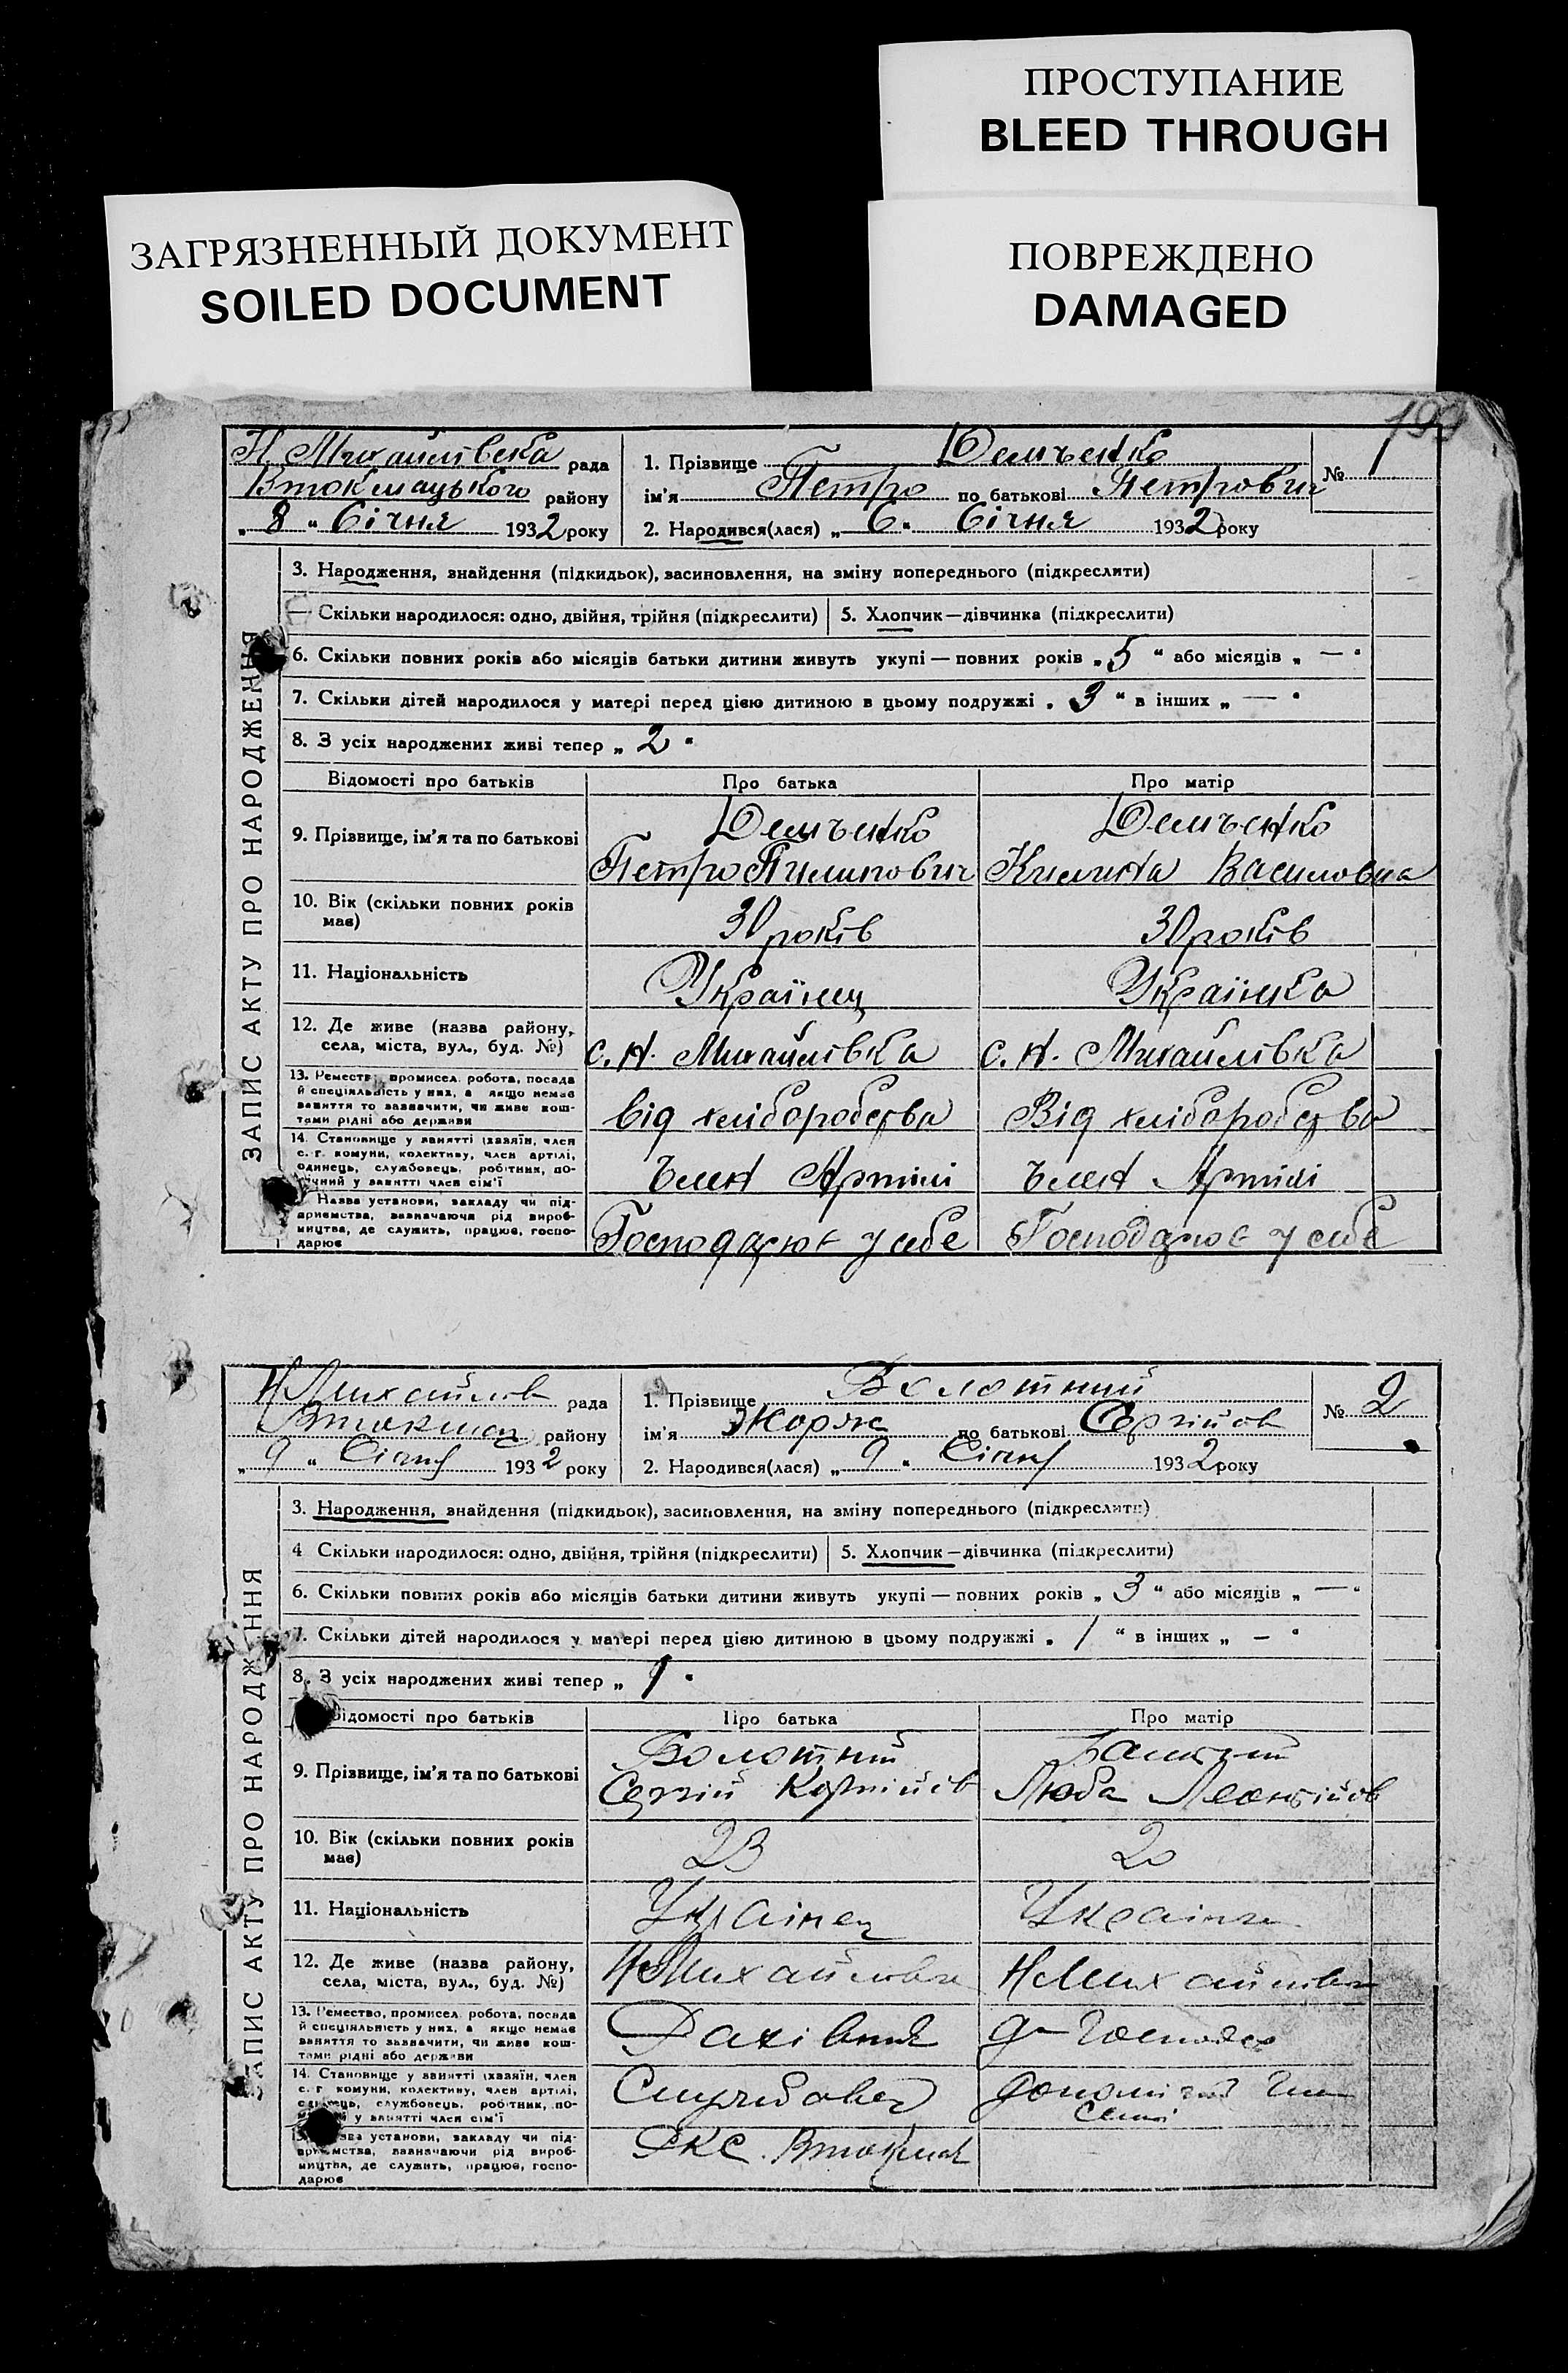 ПРОСТУПАНИЕ
BLEED THROUGH
ЗАГРЯЗНЕННЫЙ ДОКУМЕНТ
SOILED DOCUMENT
ПОВРЕЖДЕНО
DAMAGED
199
Н. Михайлівська рада
Втокмацького району
„ 8 “ Січня 1932 року
1. Прізвище Демченко
ім'я Петро по батькові Петрович
2. Народився(лася) „ 6 “ Січня 1932 року
№ 1
ЗАПИС АКТУ ПРО НАРОДЖЕННЯ
3. Народження, знайдення (підкидьок), засиновлення, на зміну попереднього (підкреслити)
Скільки народилося: одно, двійня, трійня (підкреслити) 5. Хлопчик—дівчинка (підкреслити)
6. Скільки повних років або місяців батьки дитини живуть укупі — повних років „ 5 “ або місяців „ — “
7. Скільки дітей народилося у матері перед цією дитиною в цьому подружжі „ 3 “ в інших „ — “
8. З усіх народжених живі тепер „ 2 “
Відомості про батьків Про батька Про матір
9. Прізвище, ім'я та по батькові
Демченко Демченко
Петро Пилипович Килина Василовна
10. Вік (скільки повних років має) 30 років 30 років
11. Національність Українец Українка
12. Де живе (назва району, села, міста, вул., буд. №) с. Н. Михайлівка с. Н. Михайлівка
13. Ремество, промисел, робота, посада й спеціяльність у них, а якщо немає заняття то зазначити, чи живе коштами рідні або держави
від хліборобства Від хліборобства
14. Становище у занятті (хазяїн, член с.-г. комуни, колективу, член артілі, одинець, службовець, робітник, помічний у занятті член сім'ї
Член Артілі Член Артілі
Назва установи, закладу чи підприємства, зазначаючи рід виробництва, де служить, працює, господарює
Господарює у себе Господарює у себе
Н Михайлов рада
Втокмац району
„ 9 “ Січня 1932 року
1. Прізвище Болотний
ім'я Жорж по батькові Сергійов
2. Народився(лася) „ 9 “ Січня 1932 року
№ 2
ЗАПИС АКТУ ПРО НАРОДЖЕННЯ
3. Народження, знайдення (підкидьок), засиновлення, на зміну попереднього (підкреслити)
4 Скільки народилося: одно, двійня, трійня (підкреслити) 5. Хлопчик—дівчинка (підкреслити)
6. Скільки повних років або місяців батьки дитини живуть укупі — повних років „ 3 “ або місяців „ — “
7. Скільки дітей народилося у матері перед цією дитиною в цьому подружжі „ 1 “ в інших „ — “
8. З усіх народжених живі тепер „ 1 “
Відомості про батьків Про батька Про матір
9. Прізвище, ім'я та по батькові
Болотний
Сергій Корнійов Люба Леонтійов
10. Вік (скільки повних років має) 23 20
11. Національність Українец Українка
12. Де живе (назва району, села, міста, вул., буд. №) Н Михайловка Н Михайловка
13. Ремество, промисел, робота, посада й спеціяльність у них, а якщо немає заняття то зазначити, чи живе коштами рідні або держави
14. Становище у занятті (хазяїн, член с. г. комуни, колективу, член артілі, одинець, службовець, робітник, помічний у занятті член сім'ї
Службовец
семі
Назва установи, закладу чи підприємства, зазначаючи рід виробництва, де служить, працює, господарює
Втокмак